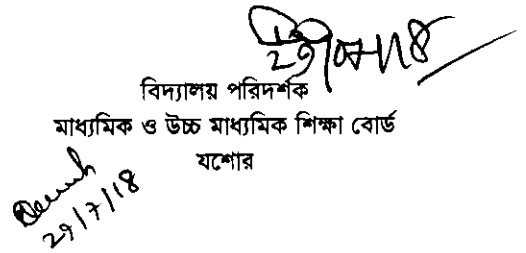 বিদ্যালয় পরিদর্শক
মাধ্যমিক ও উচ্চ মাধ্যমিক শিক্ষা বোর্ড
যশোর
29/7/18